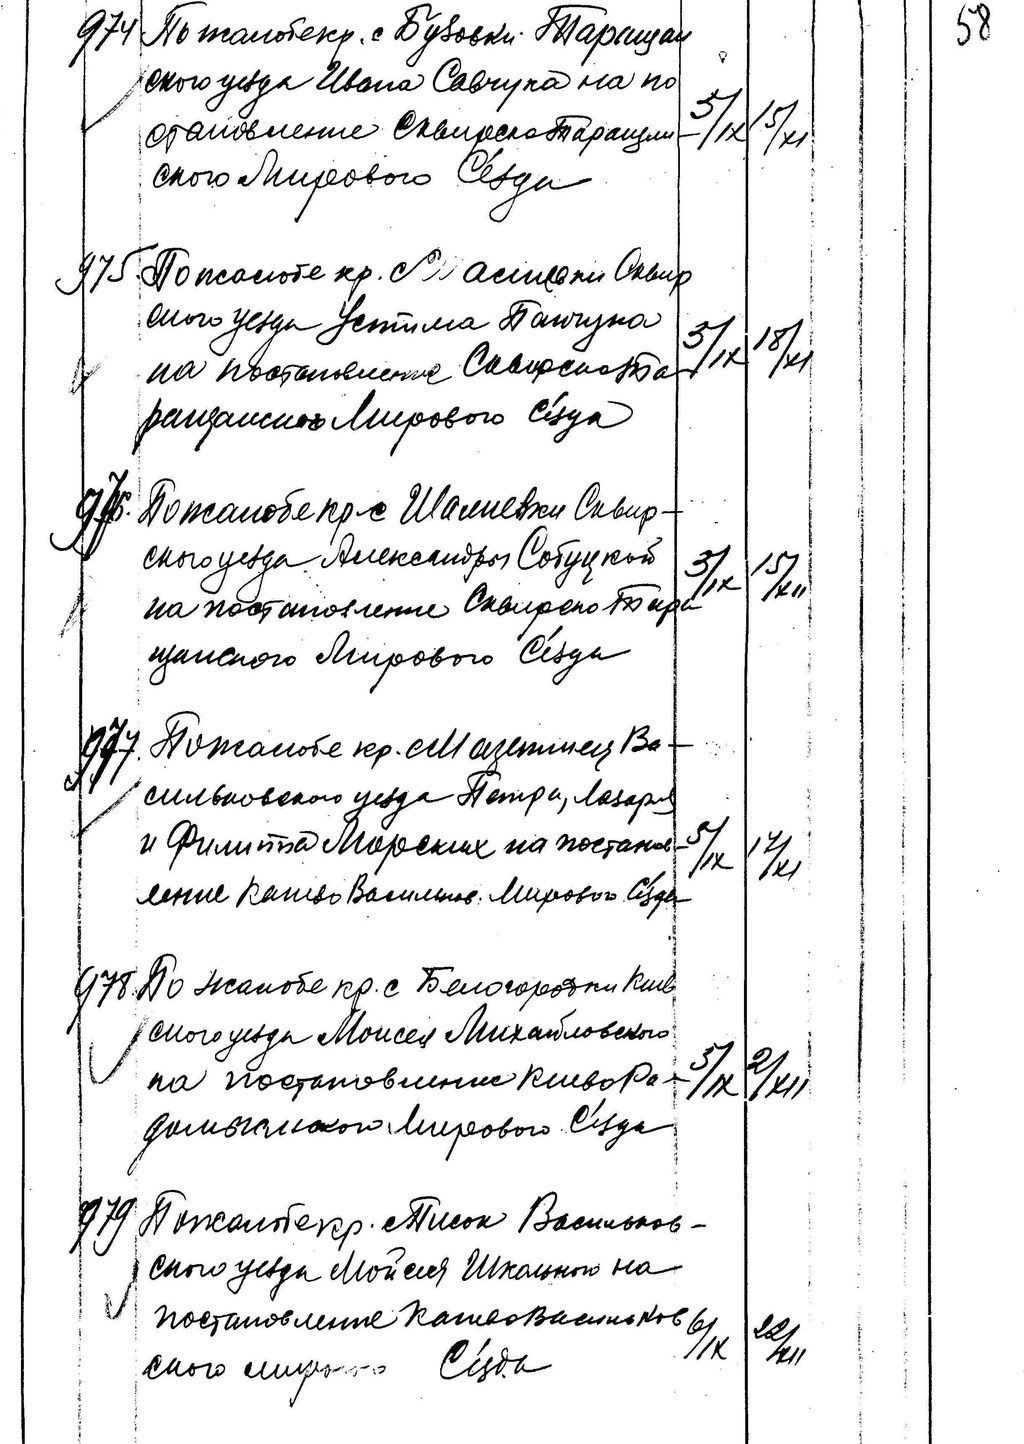 58
974 По жалобе кр. с Бузовки Таращан
ского уезда Ивана Савчука на по
становление Сквирско Таращан- 5/IX 15/XI
ского Мирового Съезда
975. По жалобе кр. с Сквир
ского уезда Устима Панчука
на постановление Сквирско Та- 5/IX 18/XI
ращанского Мирового Съезда
976. По жалобе кр с Шалиевки Сквир-
ского уезда Александры Собуцкой
на постановление Сквирско Тара 5/IX 15/XII
щанского Мирового Съезда
977. По жалобе кр. с Мазепинец Ва-
сильковского уезда Петра, Лазаря
и Филиппа Морских на постанов- 5/IX 17/XI
ление Канево Васильков. Мирового Съезда
978. По жалобе кр. с Белогородки Киев
ского уезда Моисея Михайловского
на постановление Киево Ра- 5/IX 2/XII
домысльского Мирового Съезда
979 По жалобе кр. с Писок Васильков-
ского уезда Мойсея Школьного на
постановление Канево Васильков 6/IX 22/XII
ского мирового Съезда